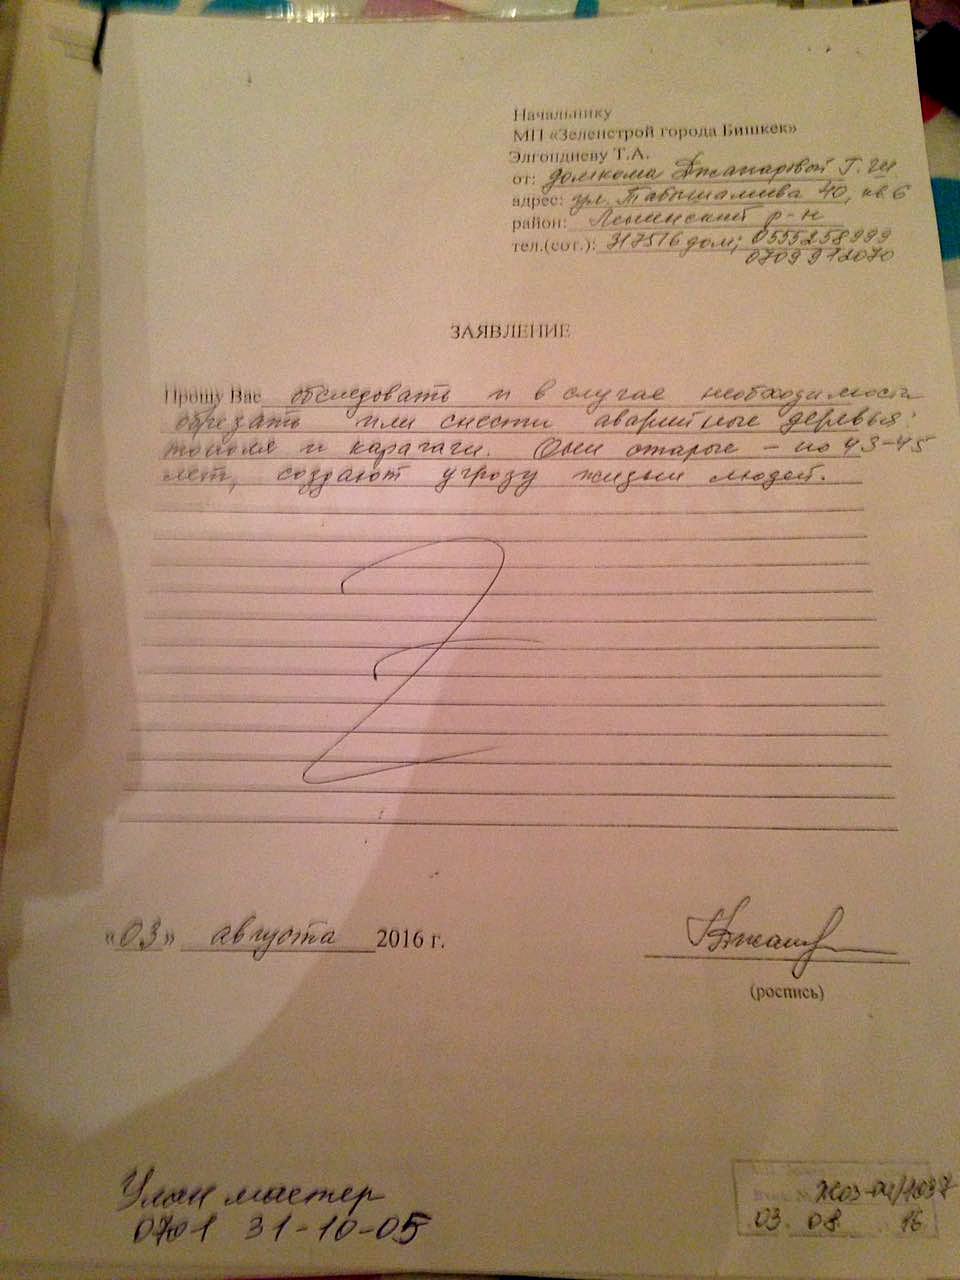 Начальнику
МП «Зеленстрой города Бишкек»
Элгондиеву Т.А.
от: домкома Джанаровой Г. Ш.
адрес: ул. Табышалиева 40, кв 6
район: Ленинский р-н
тел.(сот.): 317516 дом; 0555258999
0709 912070
ЗАЯВЛЕНИЕ
Прошу Вас обследовать и в случае необходимости
обрезать или снести аварийные деревья:
тополя и карагачи. Они старые – по 43-45
лет, создают угрозу жизни людей.
«03» августа 2016 г.
(роспись)
Улан мастер
0701 31-10-05
03 08 16